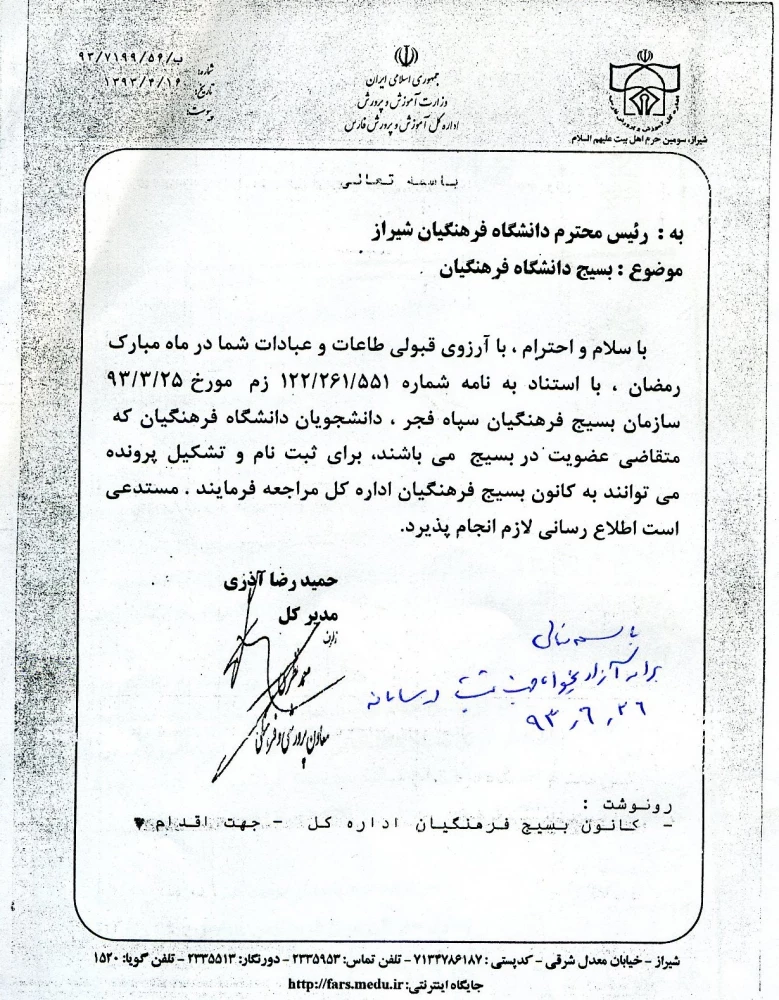 شماره: ب/۵۶/۹۳/۷۱۹۹
تاریخ: ۱۳۹۳/۴/۱۶
پیوست:
جمهوری اسلامی ایران
وزارت آموزش و پرورش
اداره کل آموزش و پرورش فارس
شیراز، سومین حرم اهل بیت علیهم السلام
باسمه تعالی
به : رئیس محترم دانشگاه فرهنگیان شیراز
موضوع : بسیج دانشگاه فرهنگیان
با سلام و احترام ، با آرزوی قبولی طاعات و عبادات شما در ماه مبارک
رمضان ، با استناد به نامه شماره ۱۲۲/۲۶۱/۵۵۱ زم مورخ ۹۳/۳/۲۵
سازمان بسیج فرهنگیان سپاه فجر ، دانشجویان دانشگاه فرهنگیان که
متقاضی عضویت در بسیج می باشند، برای ثبت نام و تشکیل پرونده
می توانند به کانون بسیج فرهنگیان اداره کل مراجعه فرمایند . مستدعی
است اطلاع رسانی لازم انجام پذیرد.
حمید رضا آذری
مدیر کل
معاون پرورشی و فرهنگی
باسمه تعالی
جهت ثبت در سامانه
۹۳٫۶٫۲۶
رونوشت :
- کانون بسیج فرهنگیان اداره کل - جهت اقدام
شیراز - خیابان معدل شرقی - کدپستی : ۷۱۳۴۷۸۶۱۸۷ - تلفن تماس: ۲۳۳۵۹۵۳ - دورنگار: ۲۳۳۵۵۱۳ - تلفن گویا: ۱۵۲۰
جایگاه اینترنتی: http://fars.medu.ir